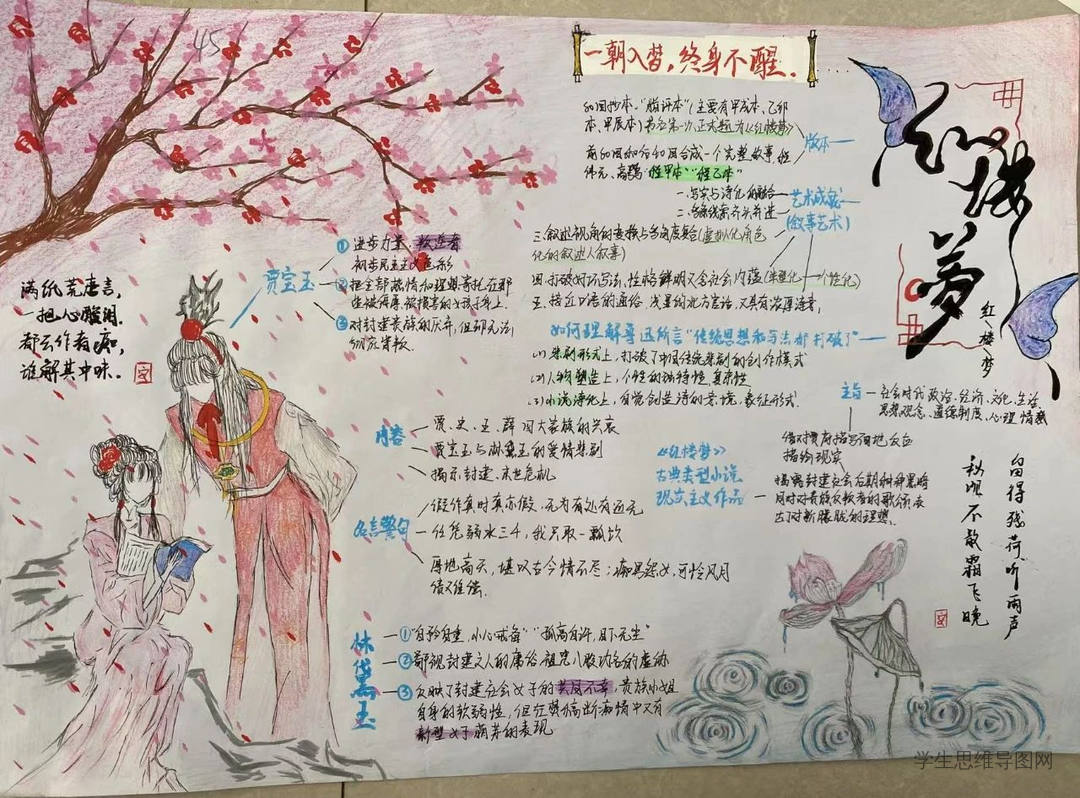 45
一朝入梦，终身不醒.
红楼梦
红楼梦
80回抄本."脂评本"(主要有甲戌本、乙卯
本、甲辰本)
版本
前80回和后40回合成一个完整故事.程
伟元、高鹗"程甲本""程乙本"
艺术成就
(叙事艺术)
一.写实与诗化的融合
三.叙述视角的变换与多角度复合(虚拟化角色
化的叙述人叙事)
四.打破
性格鲜明又含社会内蕴(典型化—个性化)
五.接近口语的通俗、浅显的北方官话，又具有浓厚诗意
如何理解鲁迅所言"传统思想和写法都打破了"
(1)悲剧形式上，打破了中国传统悲剧的创作模式
(2)人物塑造上，个性的独特性、复杂性
(3)小说诗化上，自觉创造诗的意境，象征形式
贾宝玉
①进步力量、叛逆者
初步民主主义色彩
②把全部热情和理想寄托在那
些被侮辱、被损害的女孩子身上.
③对封建贵族的厌弃，但却无法
彻底背叛.
满纸荒唐言，
一把心酸泪.
都云作者痴，
谁解其中味.
主旨
社会时代政治、经济、文化、生活
思想观念、道德制度、心理情感
借对贾府描写
描绘现实
揭露封建社会后期种种黑暗
同时对贵族叛逆者的歌颂表
达了对新朦胧的理想.
《红楼梦》
古典类型小说
现实主义作品
内容
贾、史、王、薛四大家族的兴衰
贾宝玉与林黛玉的爱情悲剧
揭示封建、末世危机
名言警句
假作真时真亦假，无为有处有还无
任凭弱水三千，我只取一瓢饮
厚地高天，堪叹古今情不尽；痴男怨女，可怜风月
债难偿.
林黛玉
①"自矜自重，小心戒备""孤高自许，目下无尘"
②鄙视封建文人的庸俗，诅咒八股功名的虚伪
③反映了封建社会女子的
，贵族小姐
自身的软弱性，
新型女子萌芽的表现
留得残荷听雨声
秋阴不散霜飞晚
学生思维导图网